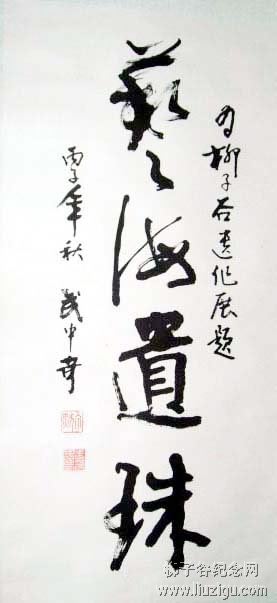 为柳子谷遗作展题
藝海遺珠
丙子年秋 武中奇
柳子谷纪念网
www.liuzigu.com